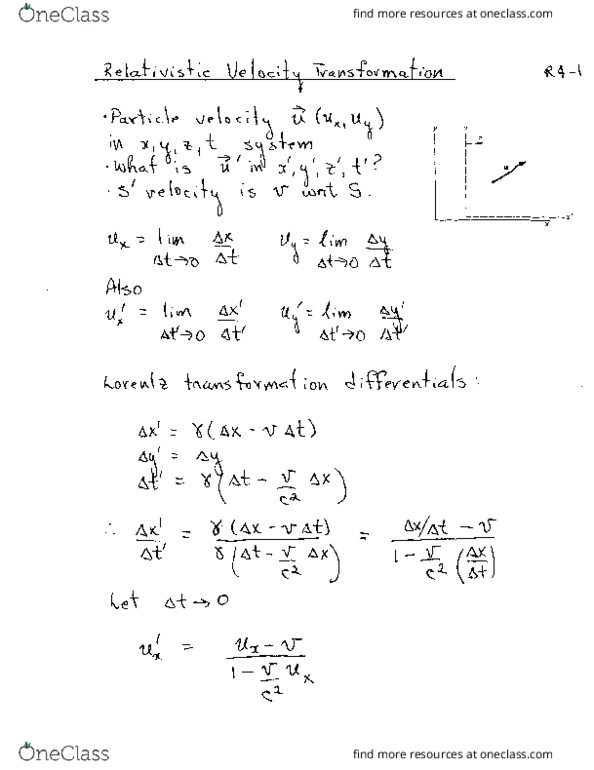 OneClass
find more resources at oneclass.com
Relativistic Velocity Transformation
R4-1
· Particle velocity u⃗ (ux, uy)
in x, y, z, t system
· What is u⃗' in x', y', z', t'?
· S' velocity is v wrt S.
ux = lim Δt→0 Δx/Δt   uy = lim Δt→0 Δy/Δt
Also
ux' = lim Δt'→0 Δx'/Δt'   uy' = lim Δt'→0 Δy'/Δt'
Lorentz transformation differentials:
Δx' = γ(Δx - v Δt)
Δy' = Δy
Δt' = γ(Δt - v/c² Δx)
∴ Δx'/Δt' = γ(Δx - v Δt) / γ(Δt - v/c² Δx) = (Δx/Δt - v) / (1 - v/c² (Δx/Δt))
Let Δt→0
ux' = (ux - v) / (1 - v/c² ux)
OneClass
find more resources at oneclass.com